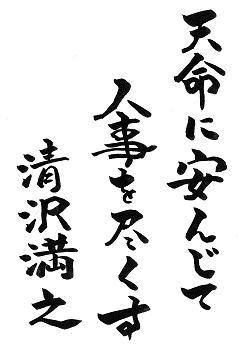 天命に安んじて
人事を尽くす
清沢満之